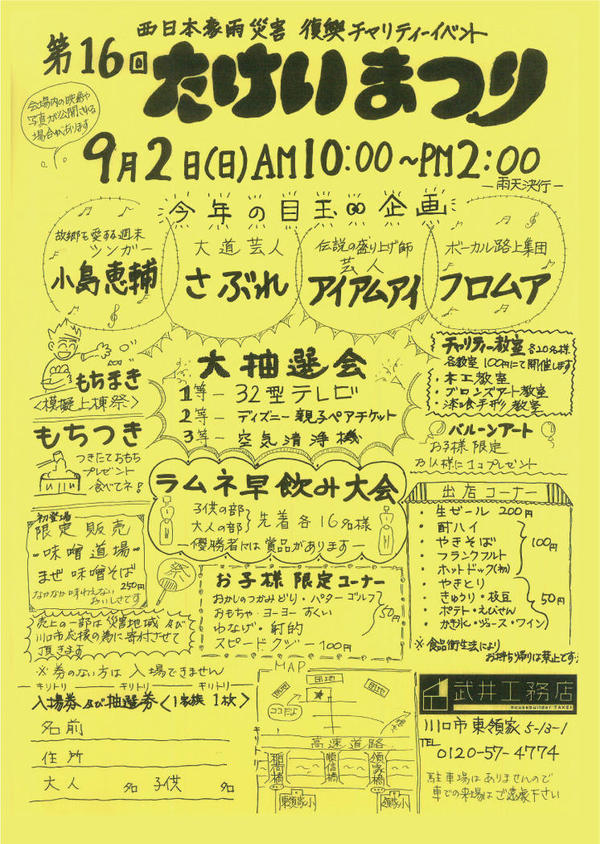 西日本豪雨災害 復興チャリティーイベント
第16回 たけいまつり
会場内の映像や
写真が公開される
場合があります
9月2日(日)AM10:00~PM2:00
ー雨天決行ー
今年の目玉の企画
故郷を愛する週末
シンガー
小島恵輔
大道芸人
さぶれ
伝説の盛り上げ師
芸人
アイアムアイ
ボーカル路上集団
フロムア
もちまき
<模擬上棟祭>
大抽選会
1等ー32型テレビ
2等ーディズニー親子ペアチケット
3等ー空気清浄機
チャリティー教室 各20名様
各教室100円にて開催します
・木工教室
・ブロンズアート教室
・漆喰手形教室
もちつき
つきたておもち
プレゼント
食べてネ!
バルーンアート
お子様限定
お1人様に1コプレゼント
ラムネ早飲み大会
子供の部
大人の部
先着各16名様
ー優勝者には賞品がありますー
初登場
限定販売
-味噌道場-
まぜ味噌そば
250円
なかなか味わえない
おいしさです
お子様限定コーナー
おかしのつかみどり・パターゴルフ
おもちゃ・ヨーヨーすくい
50円
わなげ・射的
スピードクジー100円
出店コーナー
・生ビール 200円
・酎ハイ
・やきそば
・フランクフルト
・ホットドック(初)
100円
・やきとり
・きゅうり・枝豆
・ポテト・えびせん
・かき氷・ジュース・ワイン
50円
※食品衛生法により
お持ち帰りは禁止です
売上の一部は災害地域及び
川口市応援の為に寄付させて
頂きます
※券のない方は入場できません
キリトリ キリトリ キリトリ
入場券及び抽選券<1家族1枚>
名前
住所
大人 名 子供 名
キリトリ
MAP
団地
団地
団地
ココだよ
さくら
高速道路
稲荷橋
順信橋
領家橋
東領家小
領家小
武井工務店
Housebuilder TAKEI
川口市東領家5-13-1
TEL 0120-57-4774
駐車場はありませんので
車での来場はご遠慮下さい